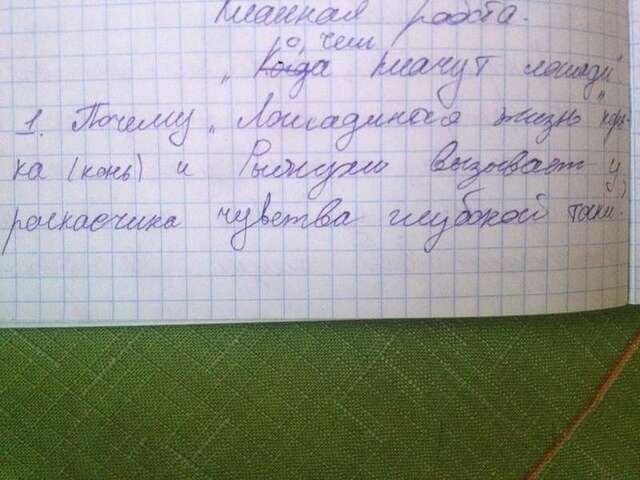 Классная работа.
О чем
„Когда плачут лошади"
1. Почему „Лошадиная жизнь" Кар-
ка (конь) и Рыжухи вызывает у
рассказчика чувства глубокой тоски.